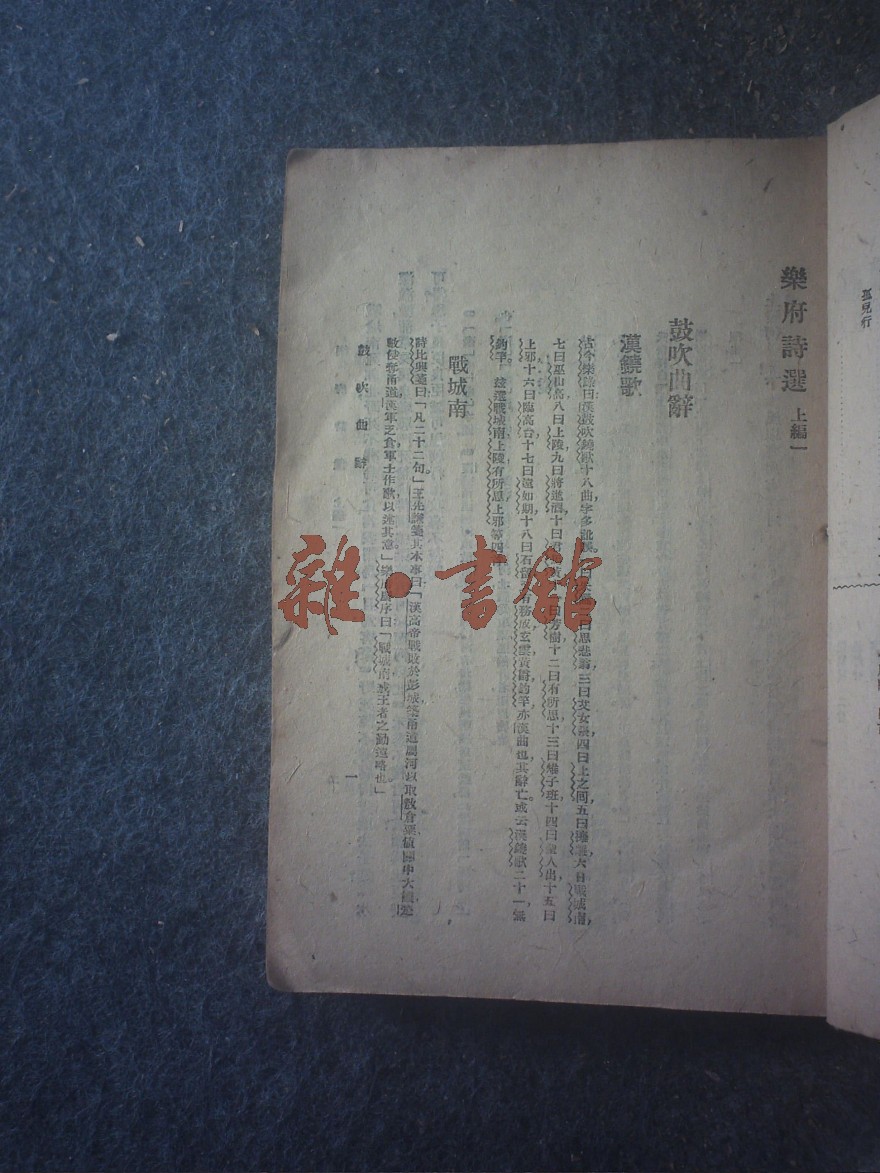 樂府詩選 上編一
鼓吹曲辭
漢鐃歌
古今樂錄曰漢鼓吹鐃歌十八曲字多訛誤一曰 二曰思悲翁三曰艾如張四曰上之回五曰擁離六曰戰城南
七曰巫山高八曰上陵九曰將進酒十曰君 曰芳樹十二曰有所思十三曰雉子班十四曰聖人出十五曰
上邪十六曰臨高台十七曰遠如期十八曰石留 有務成玄雲黃爵釣竿亦漢曲也其辭亡或云漢鐃歌二十一無
釣竿。玆選戰城南上陵有所思上邪等四
戰城南
詩比興箋曰「凡二十二句。」王先謙箋其本事曰「漢高帝戰敗於彭城築甬道屬河以取敖倉粟值關中大
數使奪甬道漢軍乏食軍士作歌以述其意」樂府 序曰「戰城南 王者之勤遠略也。」
鼓吹曲辭
一
孤兒行
雜·書館